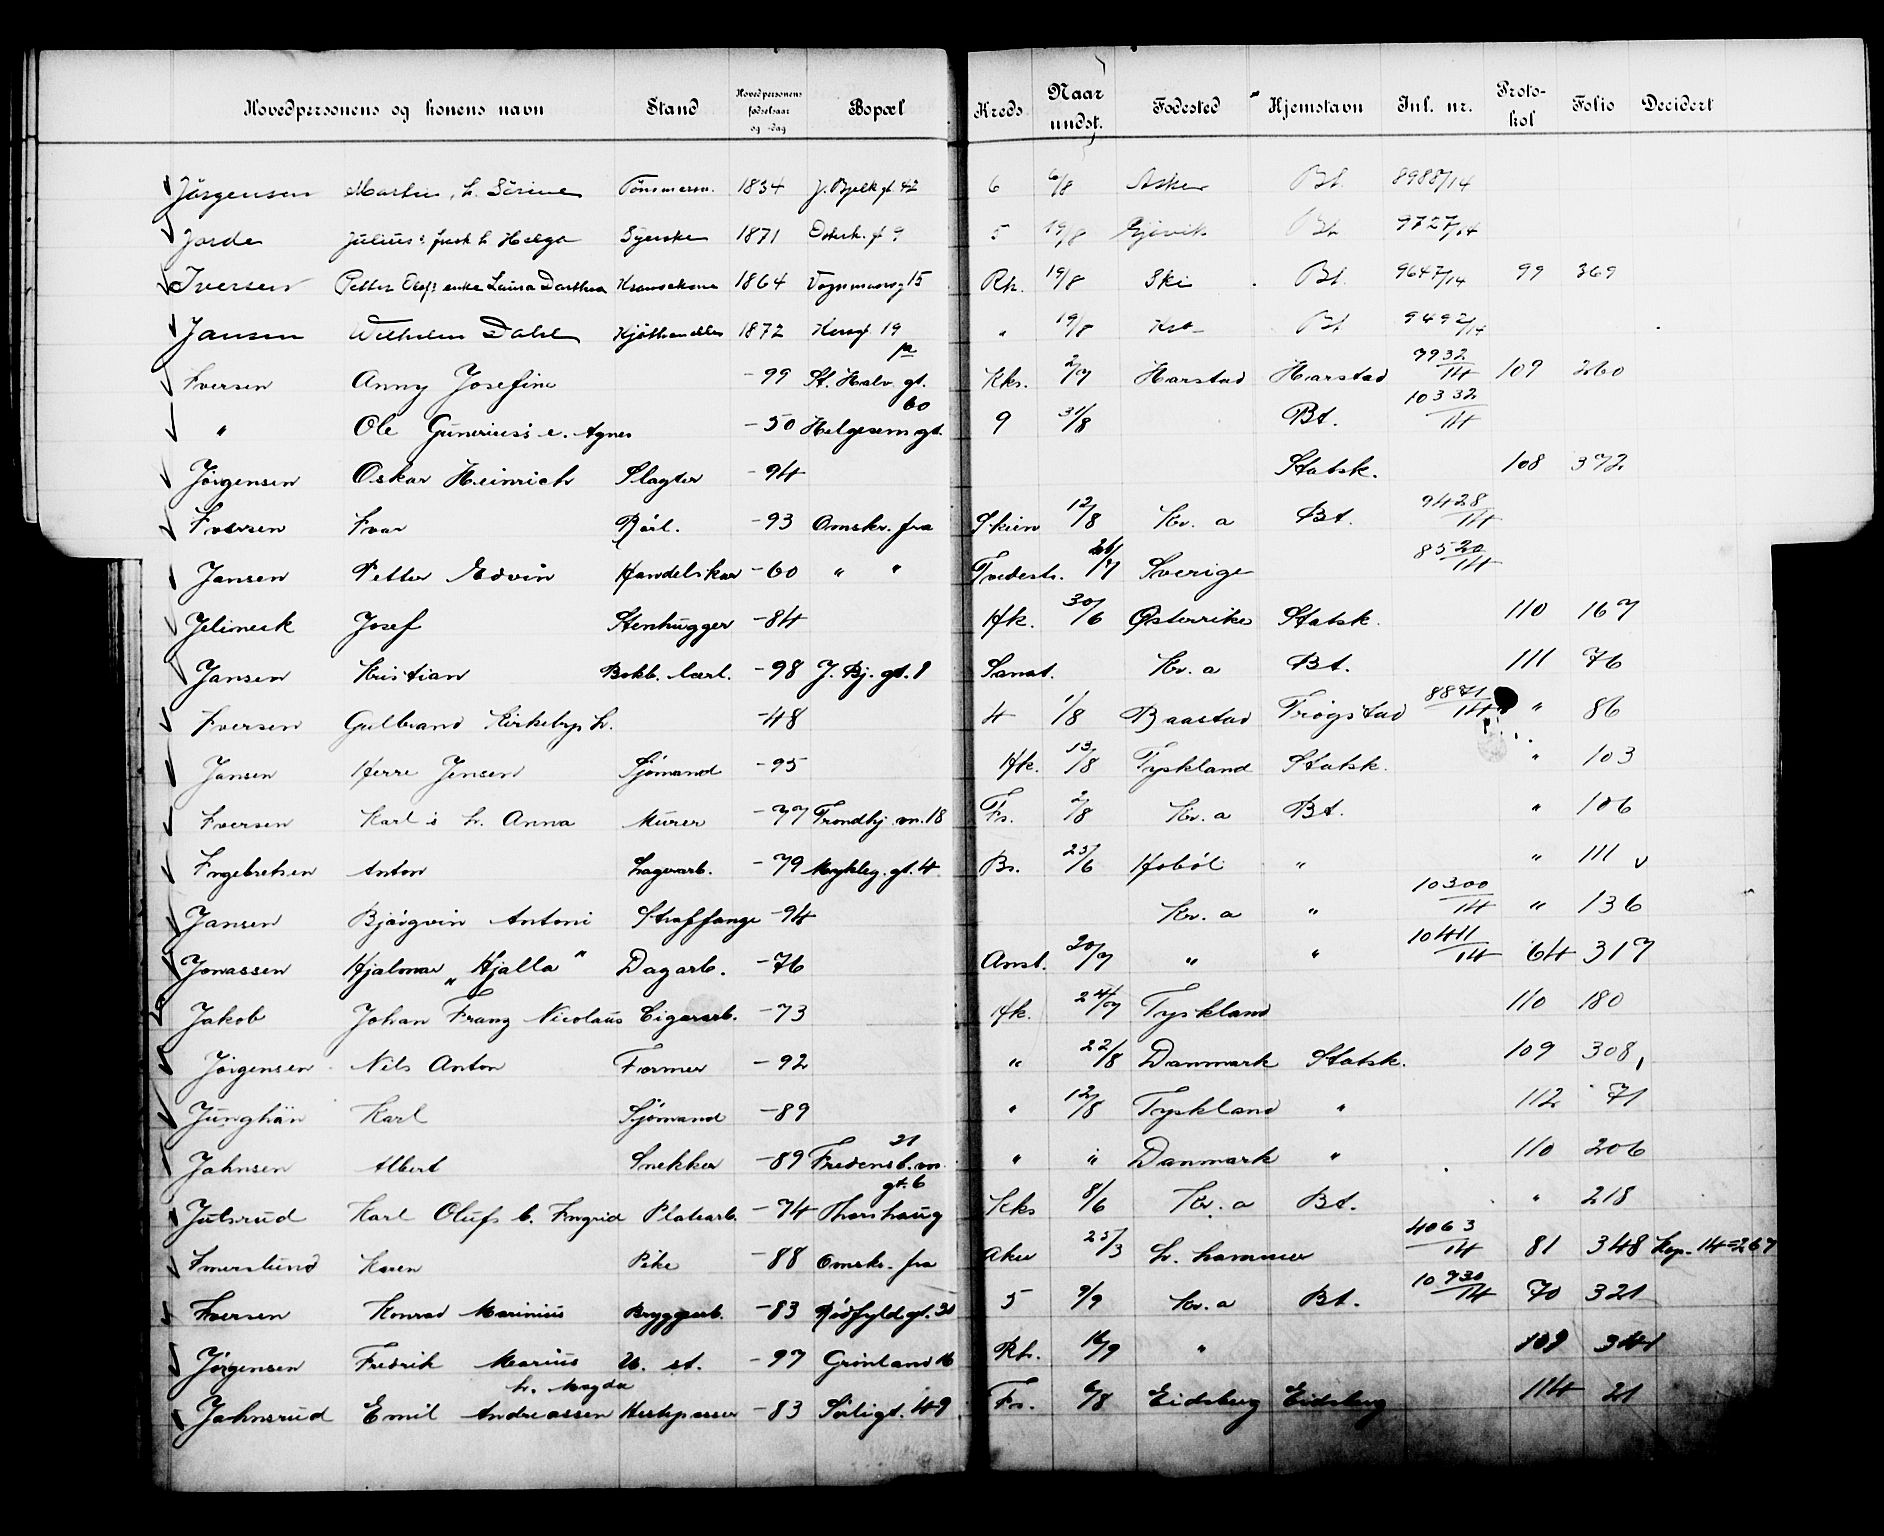 Hovedpersonens og konens navn Stand Hovedpersonens fødselsaar og -dag Bopæl Kreds Naar undst. Fødested Hjemstavn Inl. nr. Protokol Folio Decidert
Jørgensen Martin, h. Sörine Tömmerm. 1834 J. Bjelk gt. 42 6 6/8 Asker Bt. 8988/14
Jorde Julius: frask h Helga Syerske 1871 Osterh. gt 9 5 19/8 Gjövik Bt. 9727/14
Iversen Petter Olaf: enke Laura Dorthea 1864 Vognmannsg 15 Rk. 19/8 Ski Bt. 9647/14 99 369
Jansen Wilhelm Dahl Kjötthandler 1872 Hersg. 19 " 19/8 Bt 9492/14
Iversen Anny Josefine - 99 St. Halv. gt. Kks. 2/7 Harstad Harstad 7932/14 109 260
" Ole Gunerius: e. Agnes - 50 Helgesens gt. 60 9 31/8 Bt. 10332/14
Jörgensen Oskar Heinrich Slagter - 94 Statsk. 108 372
Iversen Ivar Rörl. - 93 Omskr. fra Skien 12/8 Kr. a Bt. 9428/14
Jansen Petter Edvin Handelskar - 60 " " Tvedestr. 26/7 Sverige 8520/14
Jelineck Josef Stenhugger - 84 Hk. 30/6 Østerrike Statsk. 110 167
Jansen Kristian Bokb. lærl. - 98 J. Bj. gt. 1 Sanat. Kr. a Bt. 111 76
Iversen Gulbrand Kirkeby h. - 48 4 1/8 Baastad Trögstad 8871/14 " 86
Jansen Herre Jensen Sjömand - 95 Hk. 13/8 Tyskland Statsk. " 103
Iversen Karl: h. Anna Murer - 77 Trondhj. vn. 18 Fs. 2/8 Kr. a Bt. " 106
Ingebretsen Anton Lagerarb. - 79 Mykleg. gt. 4 Bs. 25/6 Hobøl " " 111
Jansen Bjørgvin Antoni Straffange - 94 Kr. a " 10300/14 " 136
Jonassen Hjalmar „Hjalla" Dagarb. - 76 Anst. 20/7 " " 10411/14 64 317
Jakob Johan Franz Nicolaus Cigararb. - 73 Hk. 24/7 Tyskland 110 180
Jörgensen Nils Anton Former - 92 " 22/8 Danmark Statsk. 109 308
Junghän Karl Sjömand - 89 " 12/8 Tyskland " 112 71
Jahnsen Albert Snekker - 89 Fredensb. vn. 21 " " Danmark " 110 206
Julsrud Karl Olufs h. Ingrid Platearb. - 74 Thorshaug gt. 6 Kks 8/6 Kr. a Bt. " 218
Imerslund Karen Pike - 88 Omskr. fra Aker 25/3 L. hammer 4063/14 81 348 Kop. 14=267
Iversen Konrad Marinius Bryggerb. - 83 Rødfyldgt. 30 5 9/9 Kr. a Bt. 10930/14 70 321
Jørgensen Fredrik Marius U. st. - 97 Grönland 16 Rk. 16/9 " 109 341
Jahnsrud Emil Andreassen h. Magda Hestepasser - 83 Sörligt. 49 Fs. 6/8 Eidsberg Eidsberg 114 21